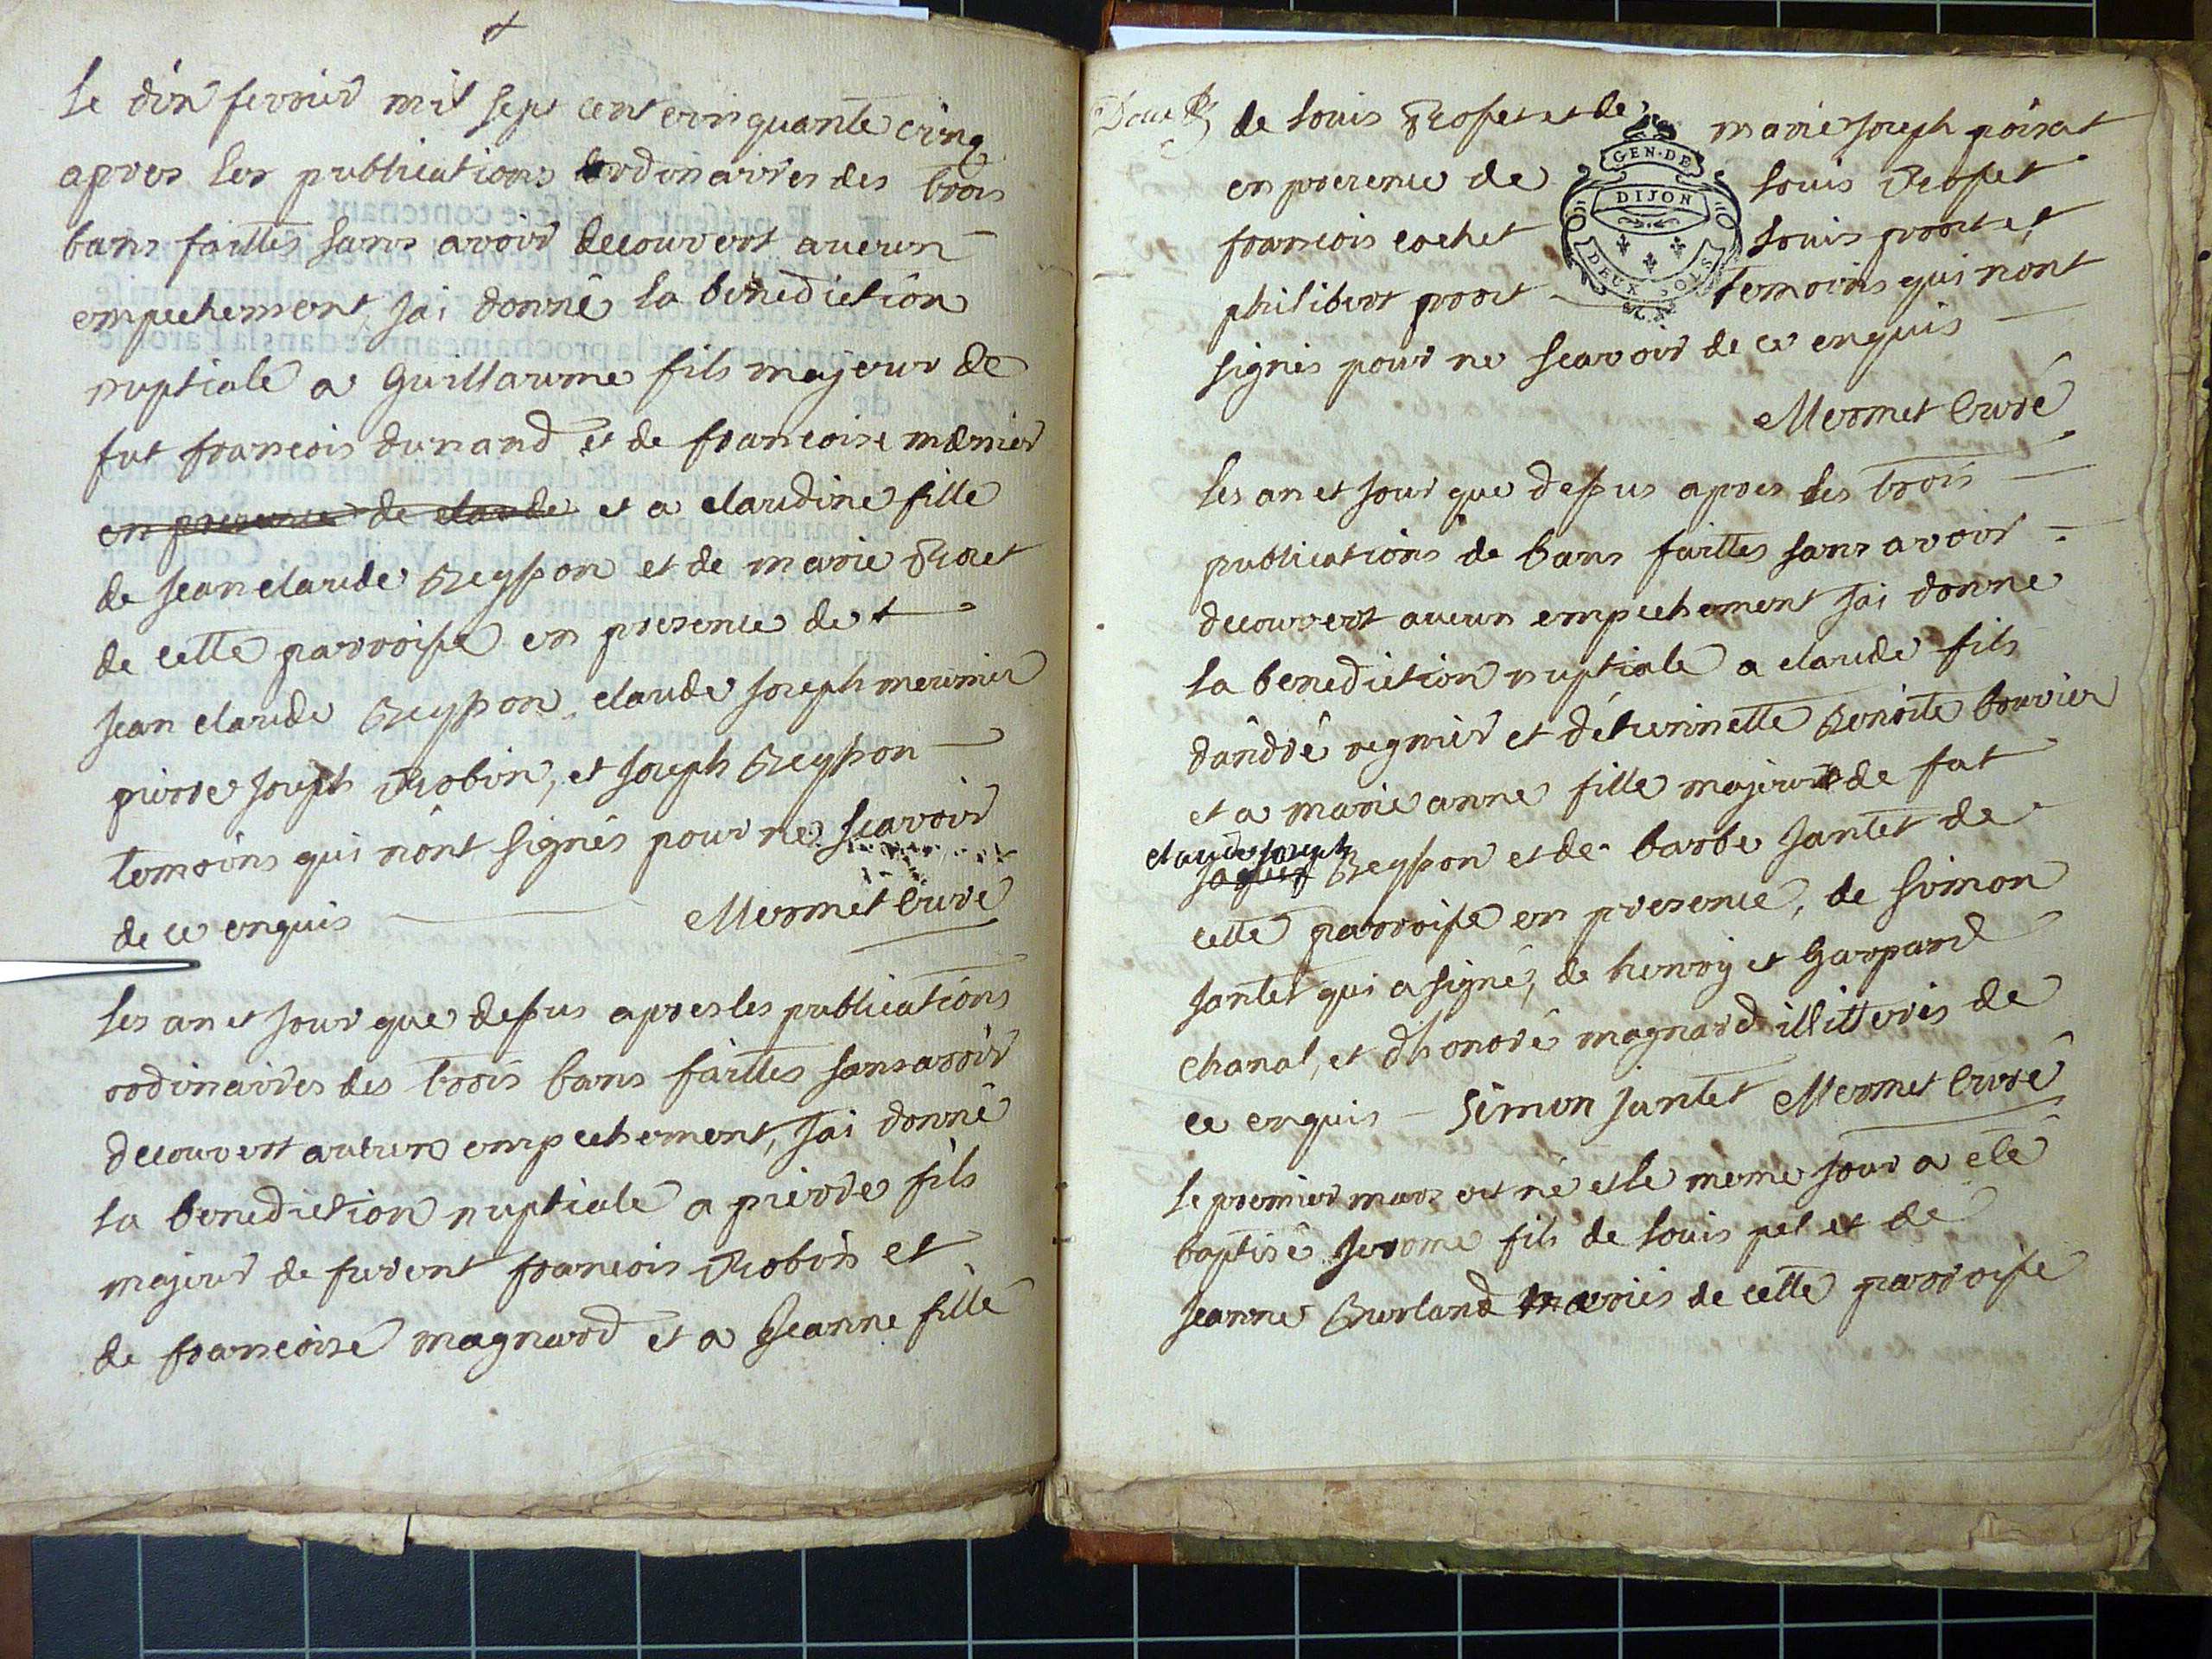 le dix fevrier mil sept cent cinquante cinq
apres les publications ordinaires des trois
bans faittes sans avoir decouvert aucun
empechement, jai donné la benediction
nuptiale a Guillaume fils majeur de
fut francois durand et de francoise mernier
en presence de claude et a claudine fille
de jean claude Reysson et de marie
de cette parroisse en presence de
jean claude Reysson, claude joseph mernier
pierre joseph Robin, et joseph Reysson
temoins qui nont signés pour ne scavoir
de ce enquis Mermet Curé
les an et jour que dessus apres les publications
ordinaires des trois bans faittes sans avoir
decouvert aucun empechement, jai donné
la benediction nuptiale a pierre fils
majeur de furent francois Robin et
de francoise magnard et a Jeanne fille
de louis Rofet et de marie joseph poisat
en presence de louis Rofet
francois cochet louis prost et
philibert prost temoins qui nont
signés pour ne scavoir de ce enquis
GEN·DE
DIJON
DEUX SOLS
Mermet Curé
les an et jour que dessus apres les trois
publications de bans faittes sans avoir
decouvert aucun empechement jai donne
la benediction nuptiale a claude fils
dandré regnier et détiennette Benoite bouvier
et a marie anne fille majeure de fut
claude joseph
Reysson et de barbe Jantet de
cette parroisse en presence, de simon
Jantet qui a signé, de henry et Gaspard
Chanal, et dhonoré magnard illitterés de
ce enquis Simon Jantet Mermet Curé
le premier mars est né et le meme jour a eté
baptisé Jerome fils de louis pel et de
Jeanne Burland mariés de cette parroisse